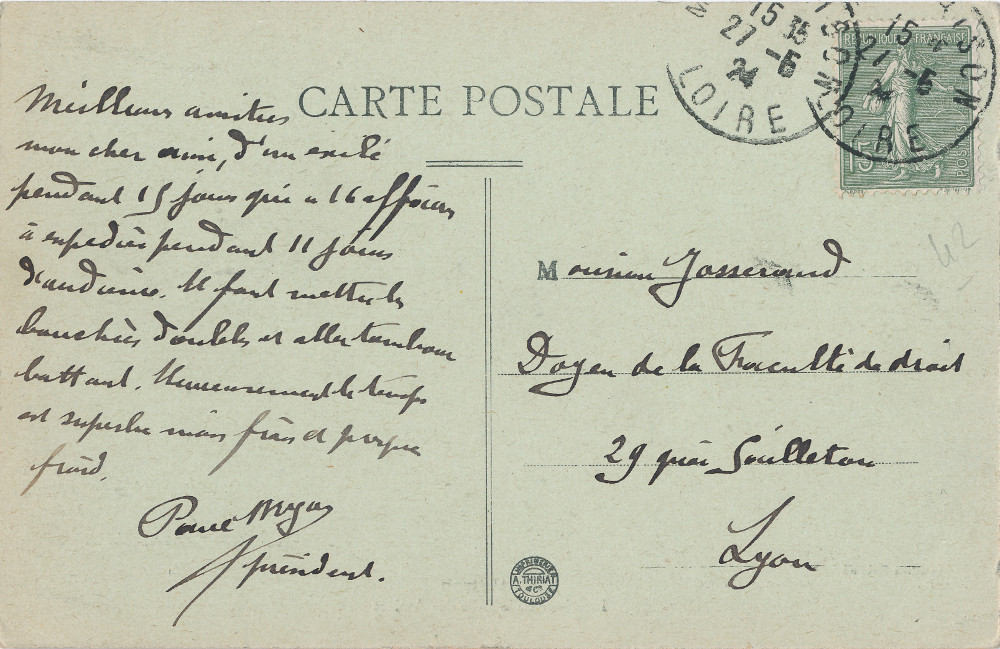 CARTE POSTALE
Meilleurs amitiés
mon cher ami, d'un exilé
pendant 15 jours qui a 16 affaires
à expedier pendant 11 jours
d'audience. Il faut mettre les
bouchées doubles et aller tambour
battant. Heureusement le temps
est superbe mais frais et presque
froid.
Paul
président.
Monsieur Josserand
Doyen de la Faculté de droit
29 quai Gailleton
Lyon
42
15 35
27 -5
24
LOIRE
15 35
27 -5
24
LOIRE
REPUBLIQUE FRANÇAISE
15
IMPRIMERIE
A. THIRIAT
& Cie
TOULOUSE